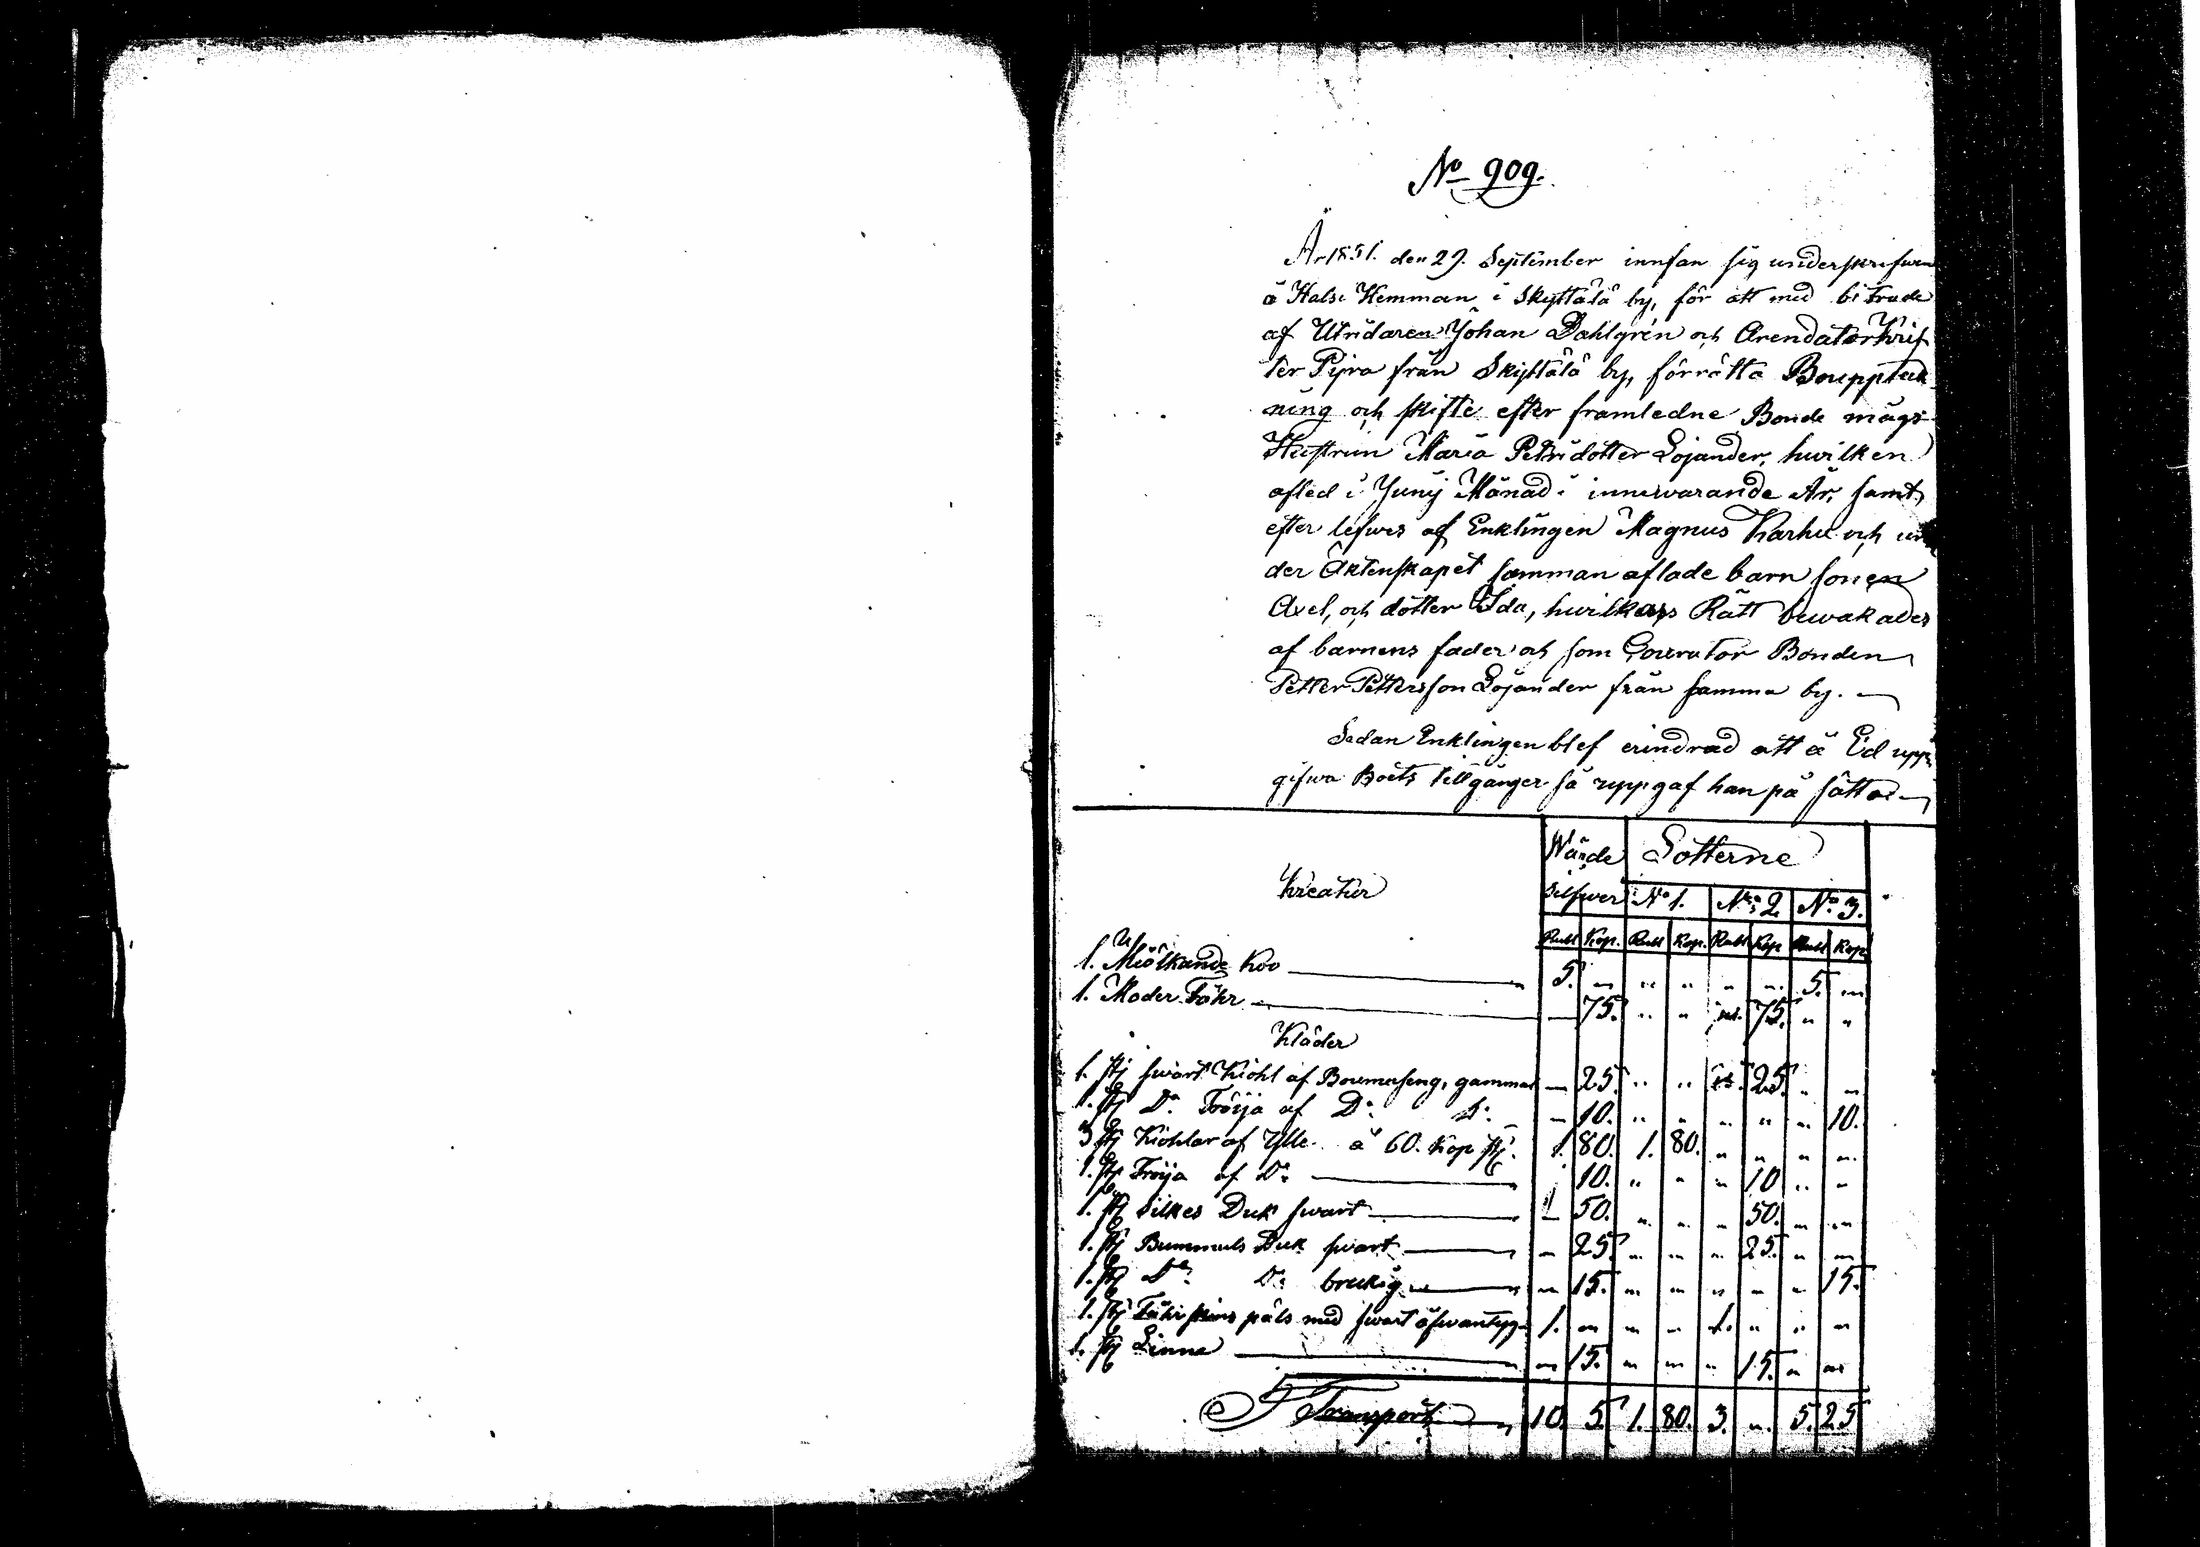 No 909.
År 1851. den 29. September innfan sig underskrifwen
å Halsi Hemman i Skyttälä by, för att med biträde
af Utridaren Johan Dahlgrén och Arendator Kris
ter Pyra från Skyttälä by, förrätta Boupptek
ning och skifte efter framledne Bonde mågs
Hustrun Maria Petri dotter Lojander, hwilken
afled i Junÿ Månad i innewarande År, samt
efter lefwes af Enklingen Magnus Karhu och un
der Äktenskapet samman aflade barn sonen
Axel, och dotter Ida, hwilkas Rätt bewakades
af barnens fader och som Couratör Bonden
Petter Pettersson Lojander från samma by. —
Sedan Enklingen blef erindrad att å Ed upp
gifwa Boets tillgånger så uppgaf han på sätt
Kreatur Wärde Lotterne
Silfwer No 1. No 2. No 3.
Rubl Kop. Rubl Kop. Rubl Kop Rubl Kop
1. Miölkande Koo — 5. " " " " " 5. "
1. Moder Fåhr — " 75. " " " 75. " "
Kläder
1. st swart Kiohl af Boumaseng, gammal — 25. " " " 25. " "
1. st Do Tröija af Do Do — 10. " " " " " 10.
3 st Kiohlar af Ylle á 60. Kop st. 1. 80. 1. 80. " " " "
1. st Tröija af Do — " 10. " " " 10 " "
1. st Silkes Duk swart — 50. " " " 50. " "
1. st Bummuls Duk swart — " 25. " " " 25. " "
1. st Do Do brukig — " 15. " " " " " 15.
1. st Fåhr skins päls med swart åfwantyg 1. " " " 1. " " "
1. st Linne — " 15. " " " 15. " "
Transport — 10. 5. 1. 80. 3. " 5. 25